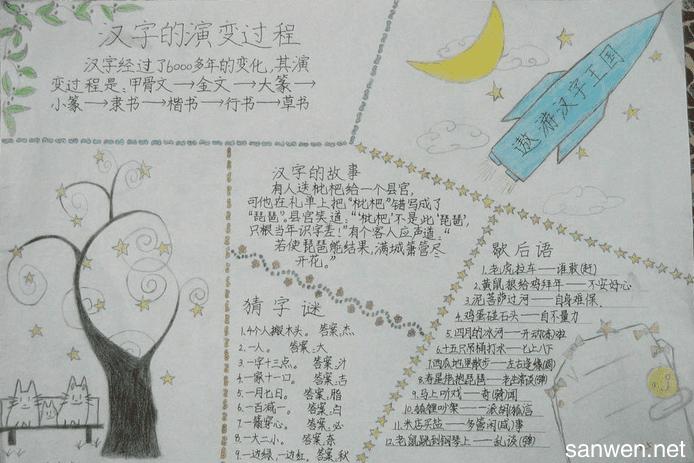 汉字的演变过程
汉字经过了6000多年的变化,其演
变过程是:甲骨文→金文→大篆→
小篆→隶书→楷书→行书→草书
遨游汉字王国
汉字的故事
有人送枇杷给一个县官,
可他在礼单上把“枇杷”错写成了
“琵琶”。县官笑道:“‘枇杷’不是此‘琵琶’,
只恨当年识字差!”有个客人应声道:“
若使琵琶能结果,满城箫管尽
开花。”
猜字谜
1.4个人搬木头。 答案:杰
2.一人。 答案:大
3.一字十三点。 答案:汁
4.一家十一口。 答案:吉
5.一月七日。 答案:脂
6.一百减一。 答案:白
7.一箭穿心。 答案:必
8.一大二小。 答案:奈
9.一边绿,一边红。答案:秋
歇后语
1.老虎拉车——谁敢(赶)
2.黄鼠狼给鸡拜年——不安好心
3.泥菩萨过河——自身难保
4.鸡蛋碰石头——自不量力
5.四月的冰河——开动(冻)啦
6.十五只吊桶打水——七上八下
7.西瓜地里散步——左右逢缘(圆)
8.寿星抱琵琶——老生常谈(弹)
9.马上听戏——奇(骑)闻
10.狐狸吵架——一派胡言
11.米店买盐——多管闲(咸)事
12.老鼠跳到钢琴上——乱谈(弹)
sanwen.net